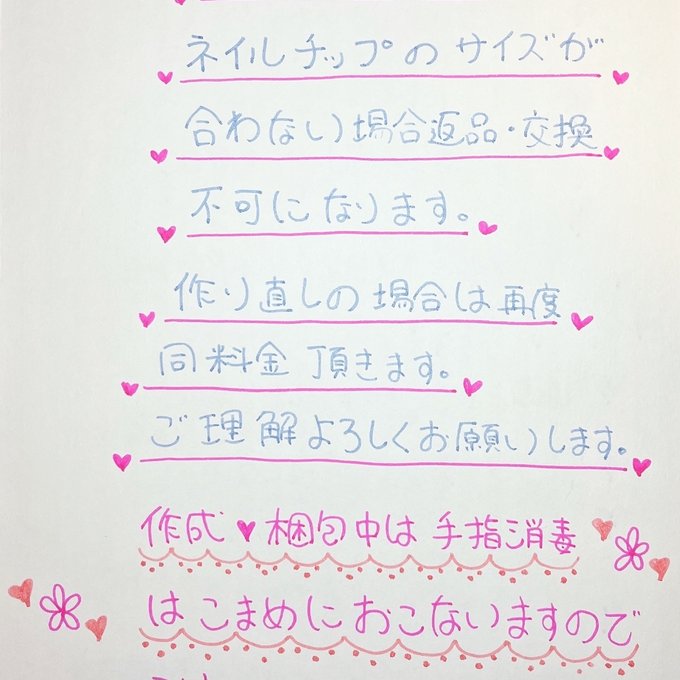 ネイルチップのサイズが
合わない場合返品・交換
不可になります。
作り直しの場合は再度
同料金頂きます。
ご理解よろしくお願いします。
作成♥梱包中は手指消毒
はこまめにおこないますので